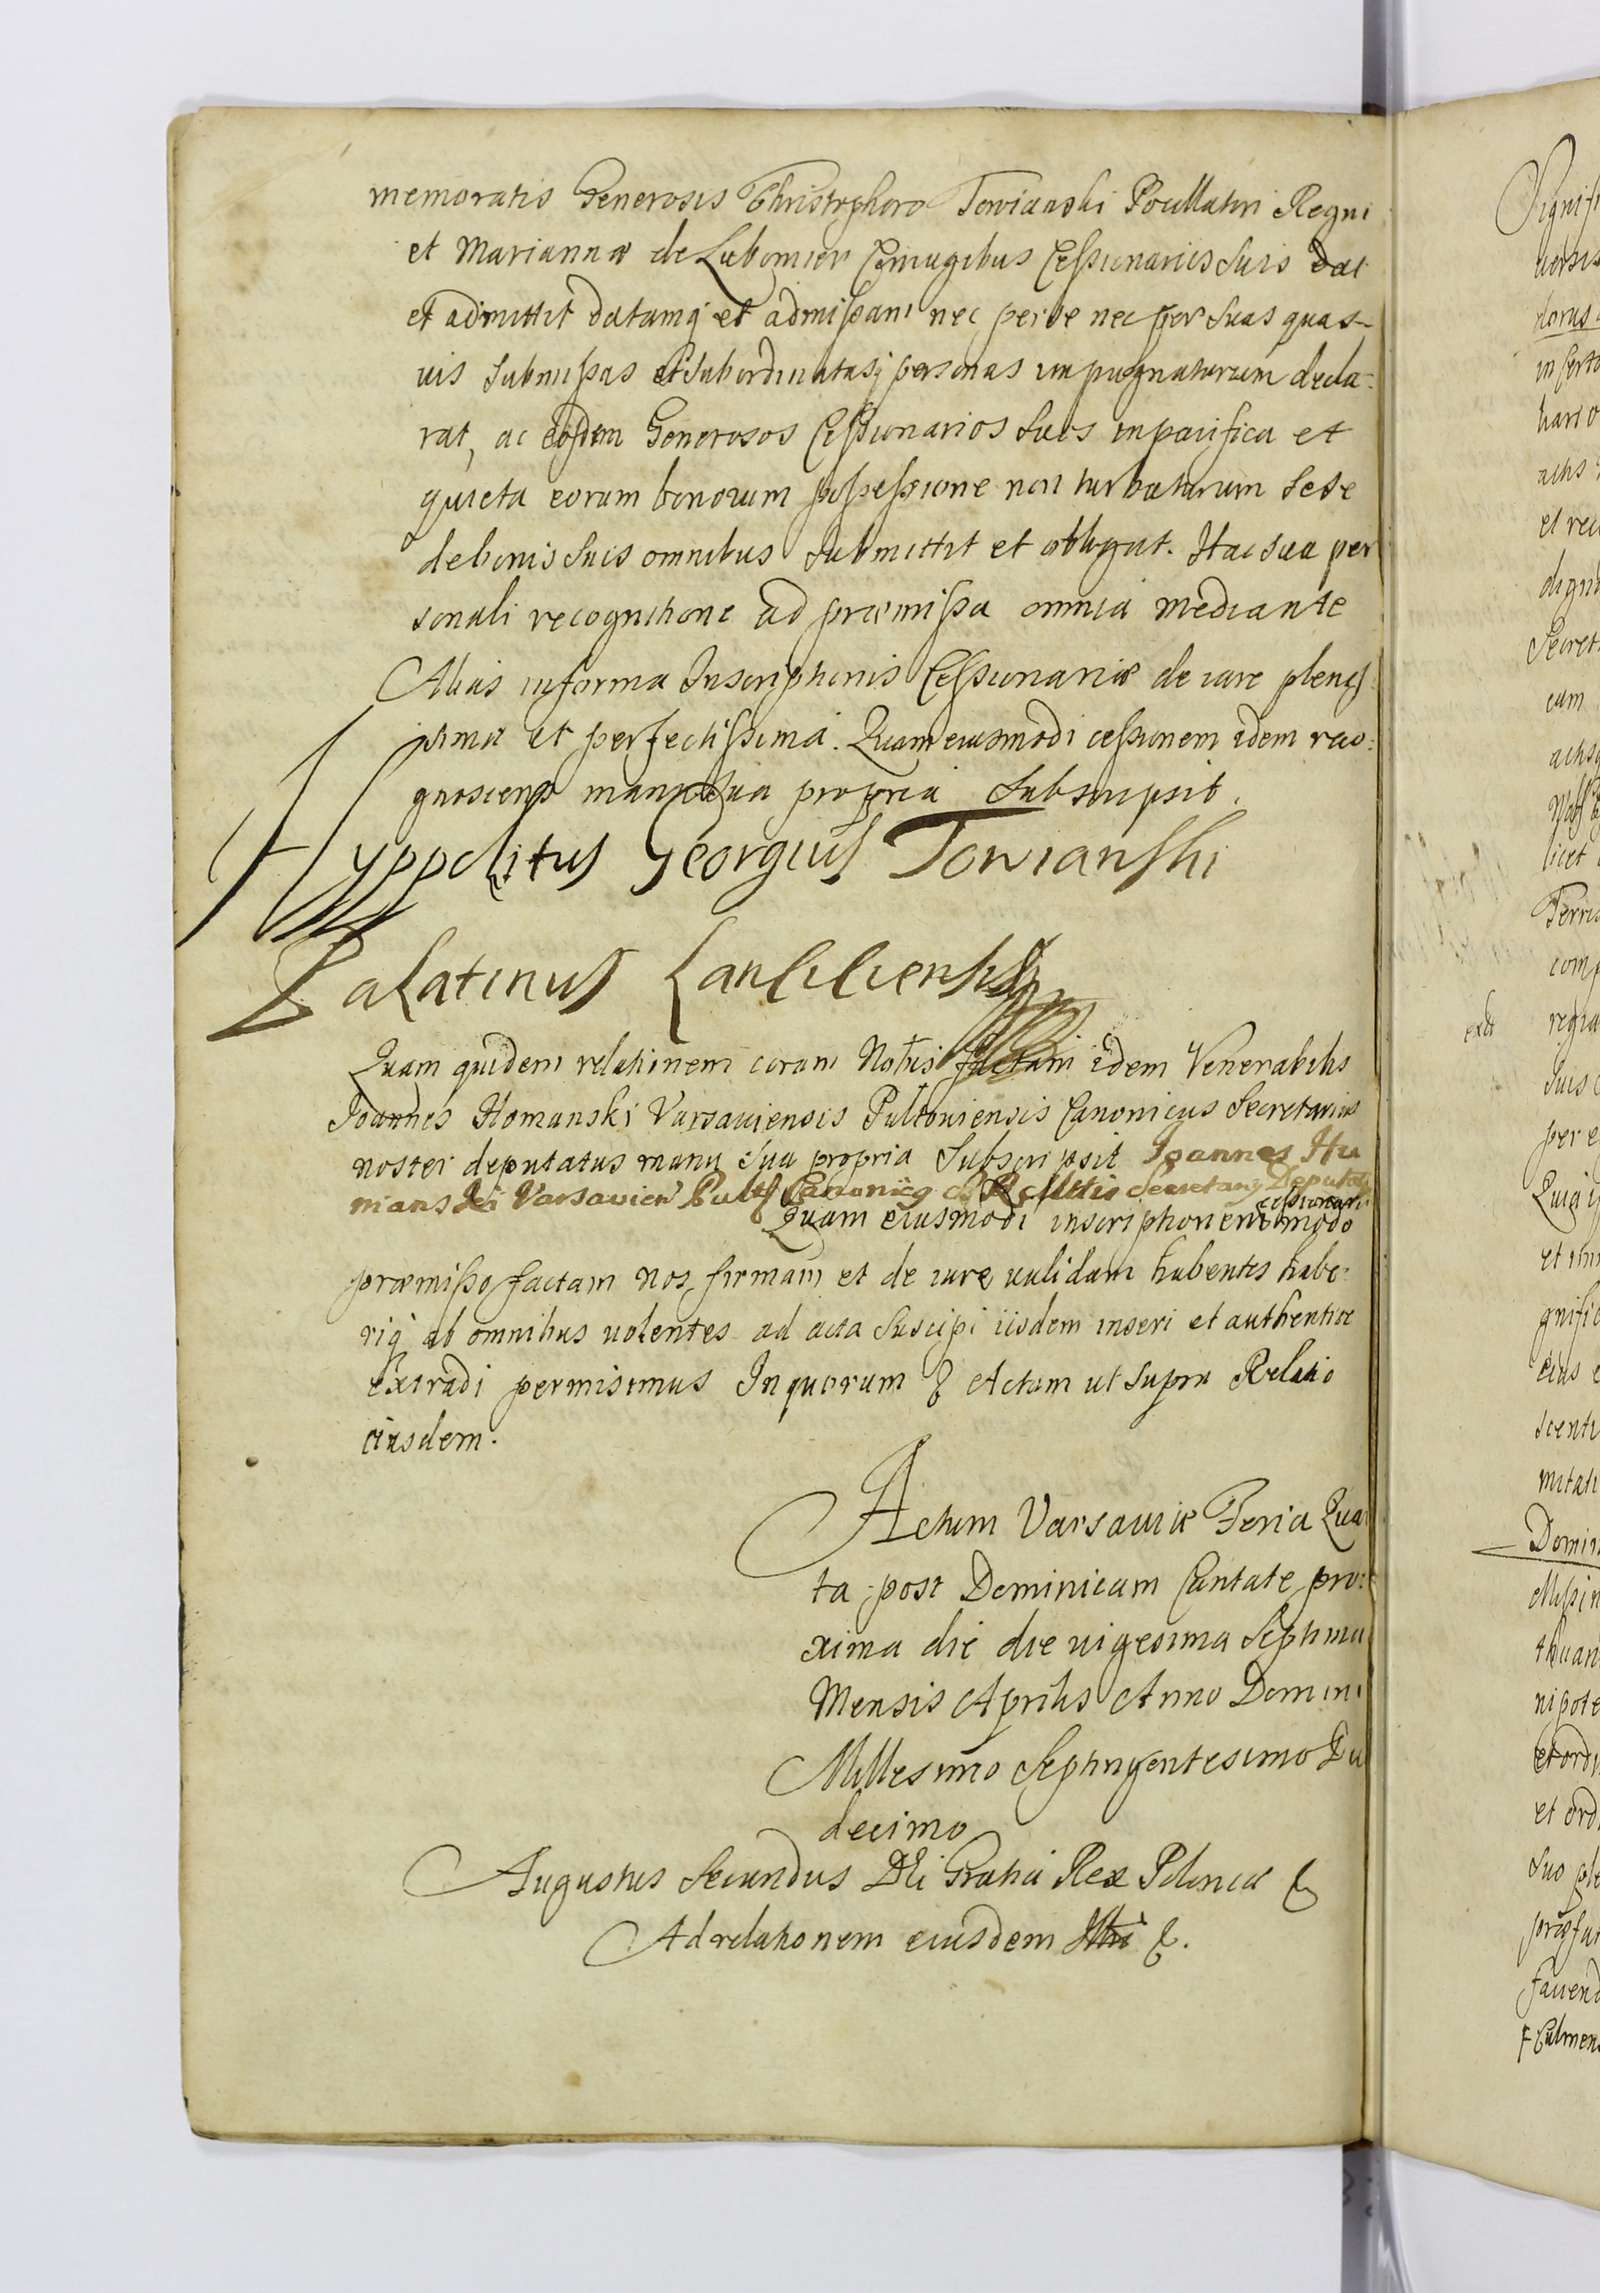 memoratis Generosis Christophoro Towianski Pocillatori Regni
et Mariannæ de Lubomier Coniugibus Cessionariis Suis dat
et admittit datamq et admissam nec per se nec per Suas quas-
uis Submissas et Subordinatasq personas impugnaturum decla-
rat, ac eosdem Generosos Cessionarios Suos in pacifica et
quieta eorum bonorum possessione non turbaturum Sese
de bonis Suis omnibus Submittit et obligat. Hac Sua per
sonali recognitione ad præmissa omnia mediante
Alias in forma Inscriptionis Cessionariæ de iure plenis
sima et perfectissima. Quam eiusmodi cessionem idem reco-
gnoscens manu Sua propria Subscripsit.
Hyppolitus Georgius Towianski
Palatinus Lanciciensis
Quam quidem relationem coram Nobis factam idem Venerabilis
Joannes Humanski Varsaviensis Pultoviensis Canonicus Secretarius
noster deputatus manu Sua propria Subscripsit Joannes Hu
manski Varsavien Pult Canonicg S R Mttis Secretarg Deputat
cessionari
Quam eiusmodi inscriptionem modo
præmisso factam nos firmam et de iure validam habentes habe-
riq ab omnibus volentes ad acta Suscipi iisdem inseri et authentice
extradi permisimus In quorum & Actum ut Supra Relatio
eiusdem.
Actum Varsaviæ Feria Quar
ta post Dominicam Cantate pro-
xima die die vigesima Septima
Mensis Aprilis Anno Domini
Millesimo Septingentesimo Du
decimo
Augustus Secundus Dei Gratia Rex Poloniæ &
Ad relationem eiusdem &.